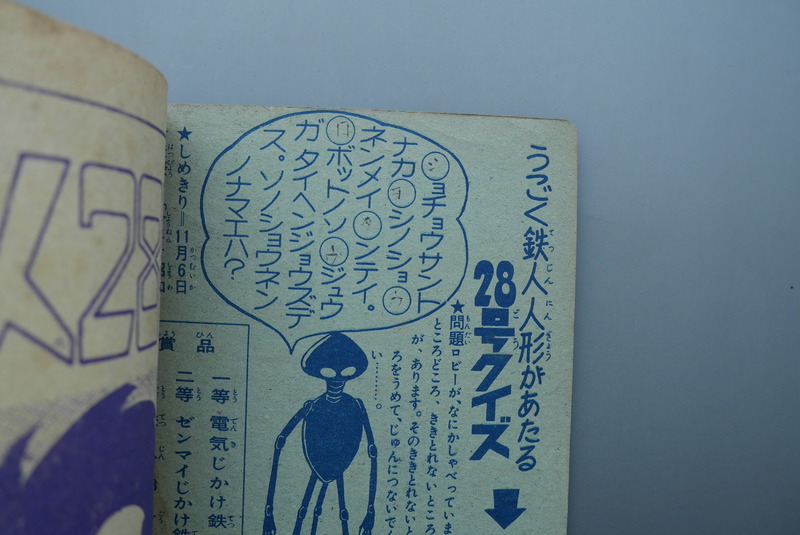 うごく鉄人人形があたる
28号クイズ
★問題 ロビーが、なにかしゃべっていま
ところどころ、ききとれないところ
が、あります。そのききとれないと
ろをうめて、じゅんにつないでん
い………。
ジョチョウサント
ナカヨシノショウ
ネンメイタンテイ。
ロボットノソウジュウ
ガタイヘンジョウズデ
ス。ソノショウネン
ノナマエハ？
★しめきり＝11月6日
賞品
一等 電気じかけ鉄
二等 ゼンマイじかけ鉄
28